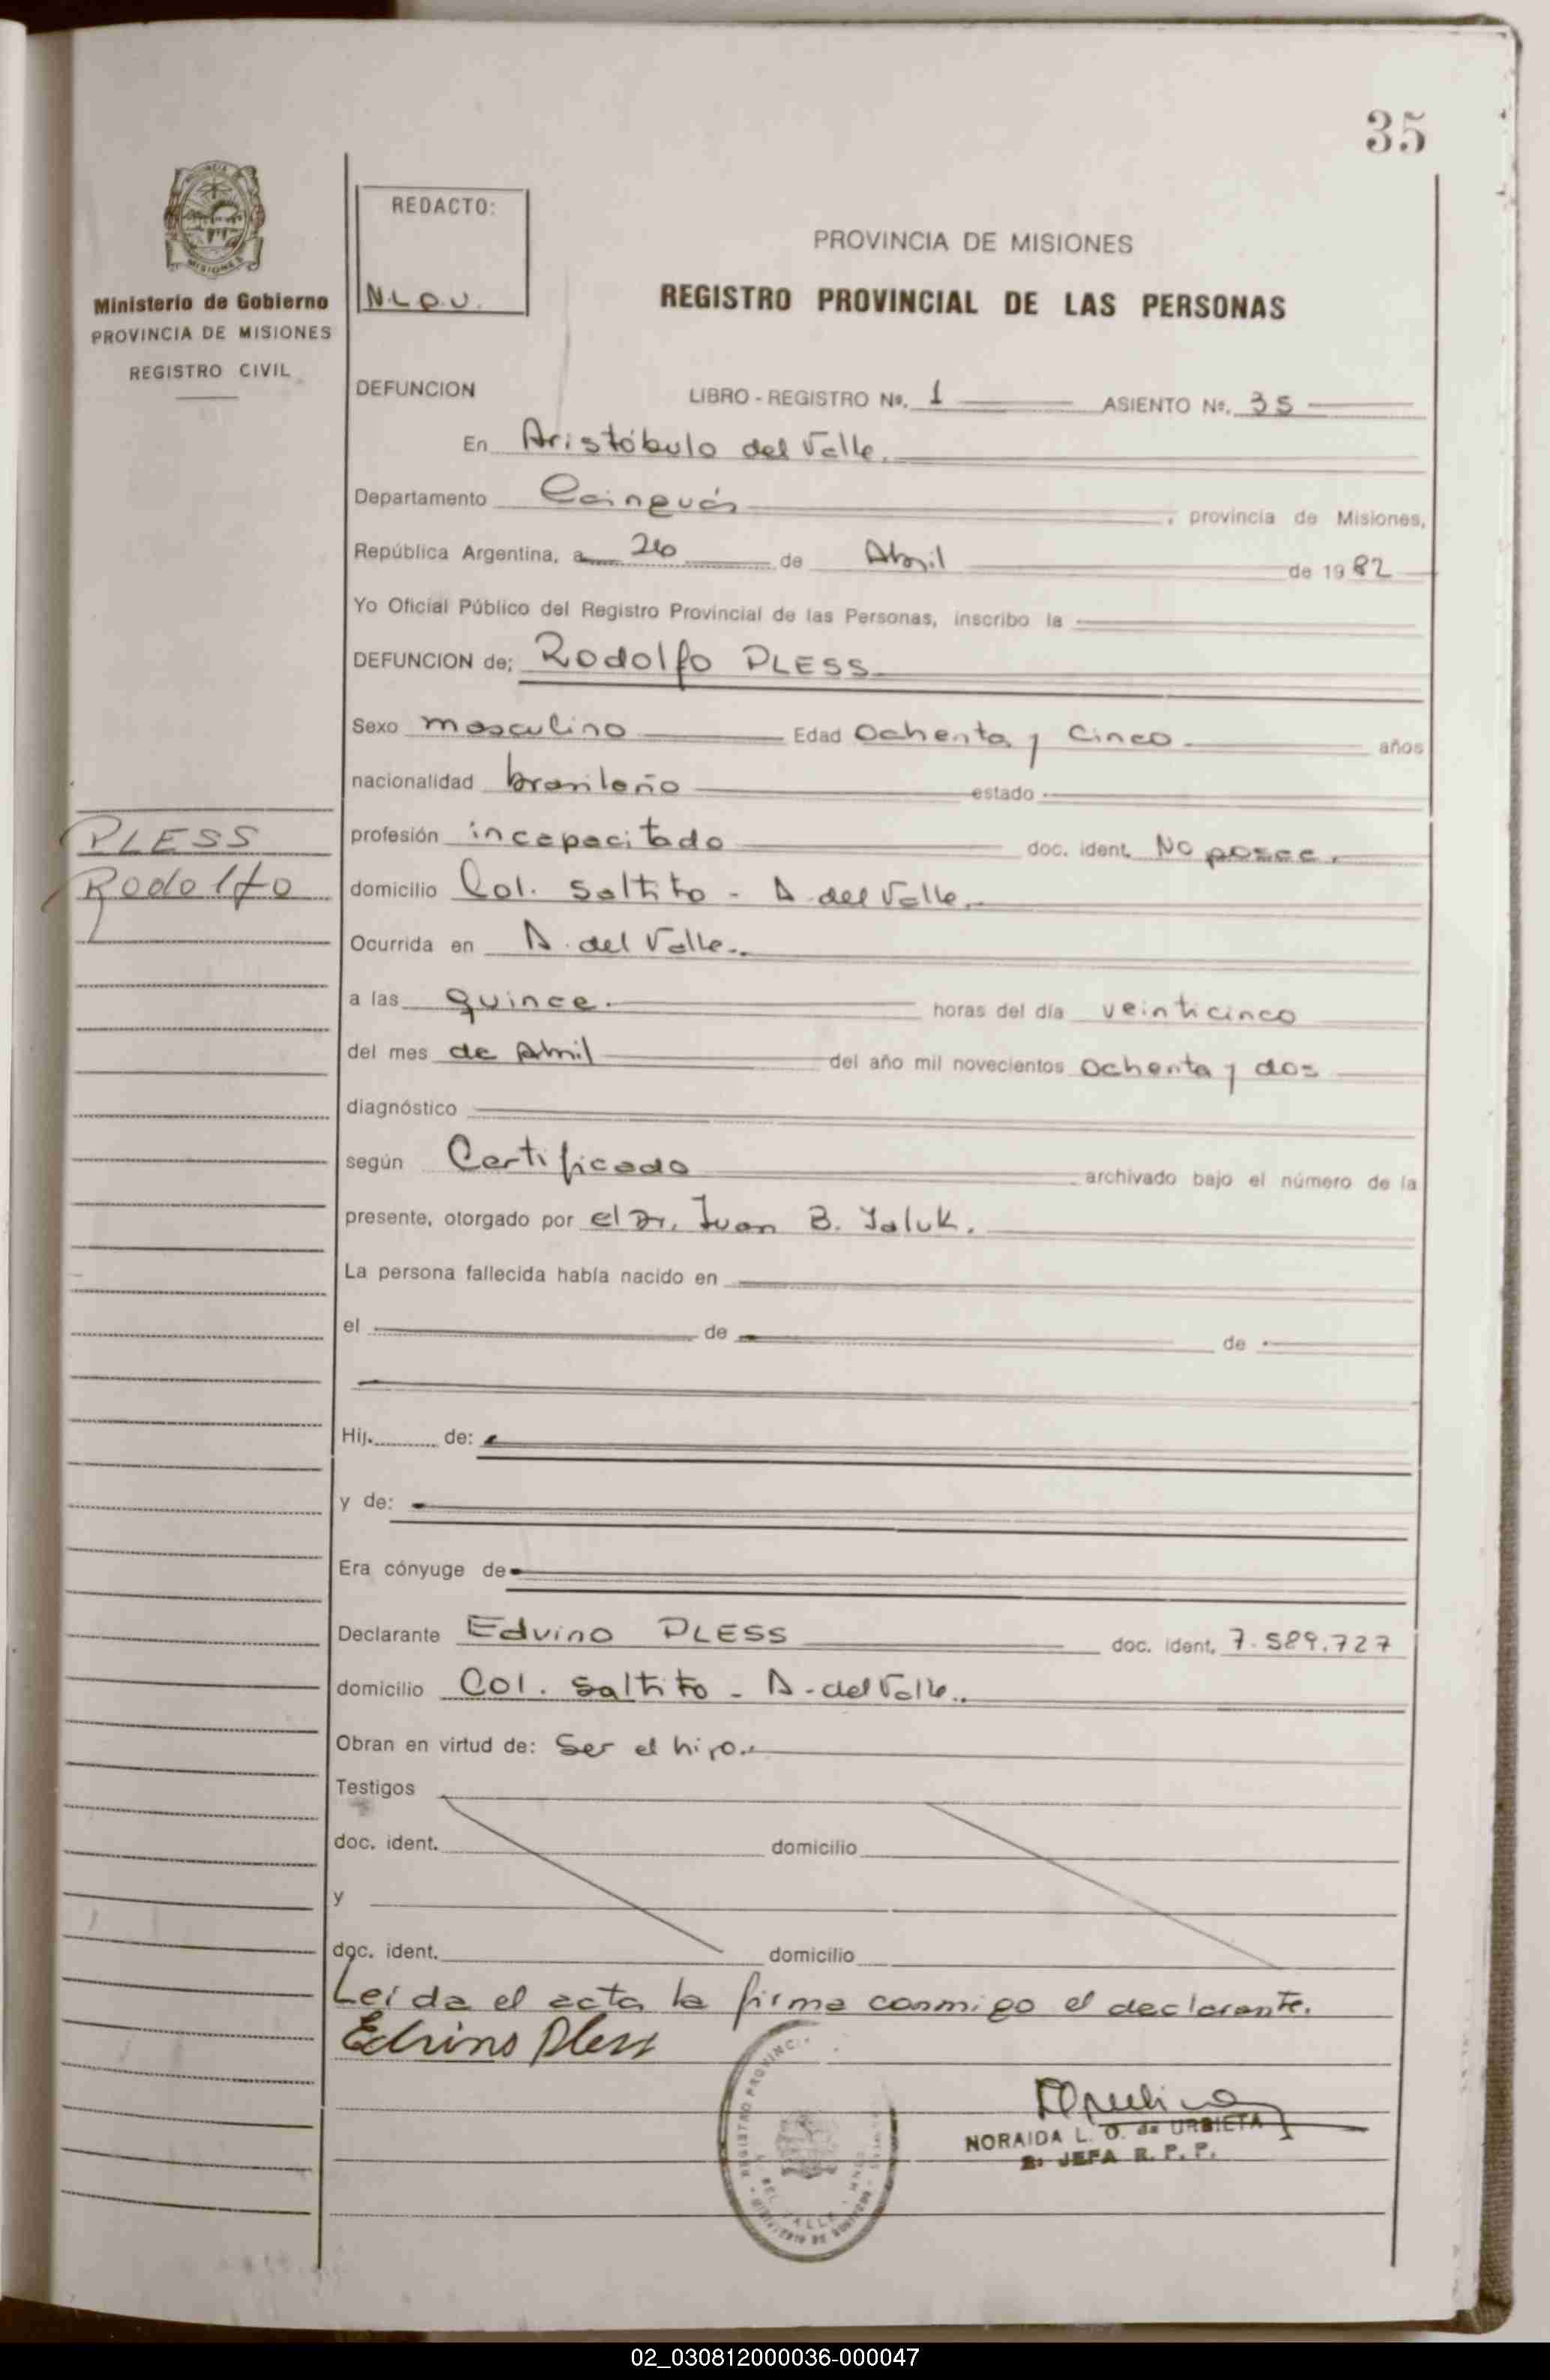 35
MISIONES
Ministerio de Gobierno
PROVINCIA DE MISIONES
REGISTRO CIVIL
REDACTO:
N.L.O.U.
PROVINCIA DE MISIONES
REGISTRO PROVINCIAL DE LAS PERSONAS
DEFUNCION LIBRO - REGISTRO Nº. 1 ASIENTO Nº. 35
En Aristóbulo del Valle.
Departamento Cainguás , provincia de Misiones,
República Argentina, a 26 de Abril de 1982
Yo Oficial Público del Registro Provincial de las Personas, inscribo la
DEFUNCION de; Rodolfo PLESS
Sexo masculino Edad Ochenta y Cinco años
nacionalidad brasileño estado
PLESS
Rodolfo
profesión incapacitado doc. ident. No posee.
domicilio Col. Saltito - A. del Valle.
Ocurrida en A. del Valle.
a las quince. horas del día veinticinco
del mes de Abril del año mil novecientos Ochenta y dos
diagnóstico
según Certificado archivado bajo el número de la
presente, otorgado por el Dr. Juan B. Jaluk.
La persona fallecida había nacido en
el de de
Hij. de:
y de:
Era cónyuge de
Declarante Edvino PLESS doc. ident. 7.589.727
domicilio Col. Saltito - A. del Valle.
Obran en virtud de: Ser el hijo.
Testigos
doc. ident. domicilio
y
doc. ident. domicilio
Leída el acta la firma conmigo el declarante.
Edvino Pless
REGISTRO PROVINC
NORAIDA L. O. de URBIETA
JEFA R. P. P.
02_030812000036-000047